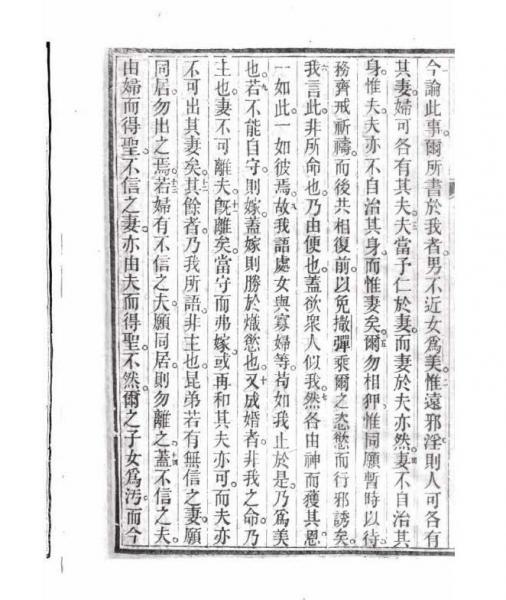 今論此事爾所書於我者男不近女為美惟遠邪淫則人可各有
其妻婦可各有其夫夫當予仁於妻而妻於夫亦然妻不自治其
身惟夫夫亦不自治其身而惟妻矣爾勿相狎惟同願暫時以待
務齊戒祈禱而後共相復前以免撒彈乘爾之恣慾而行邪誘矣
我言此非所命也乃由便也蓋欲眾人似我然各由神而獲其恩
一如此一如彼焉故我語處女與寡婦等苟如我止於是乃為美
也若不能自守則嫁蓋嫁則勝於熾慾也又成婚者非我之命乃
主也妻不可離夫旣離矣當守而弗嫁或再和其夫亦可而夫亦
不可出其妻矣其餘者乃我所語非主也昆弟若有無信之妻願
同居勿出之焉若婦有不信之夫願同居則勿離之蓋不信之夫
由婦而得聖不信之妻亦由夫而得聖不然爾之子女為汚而今